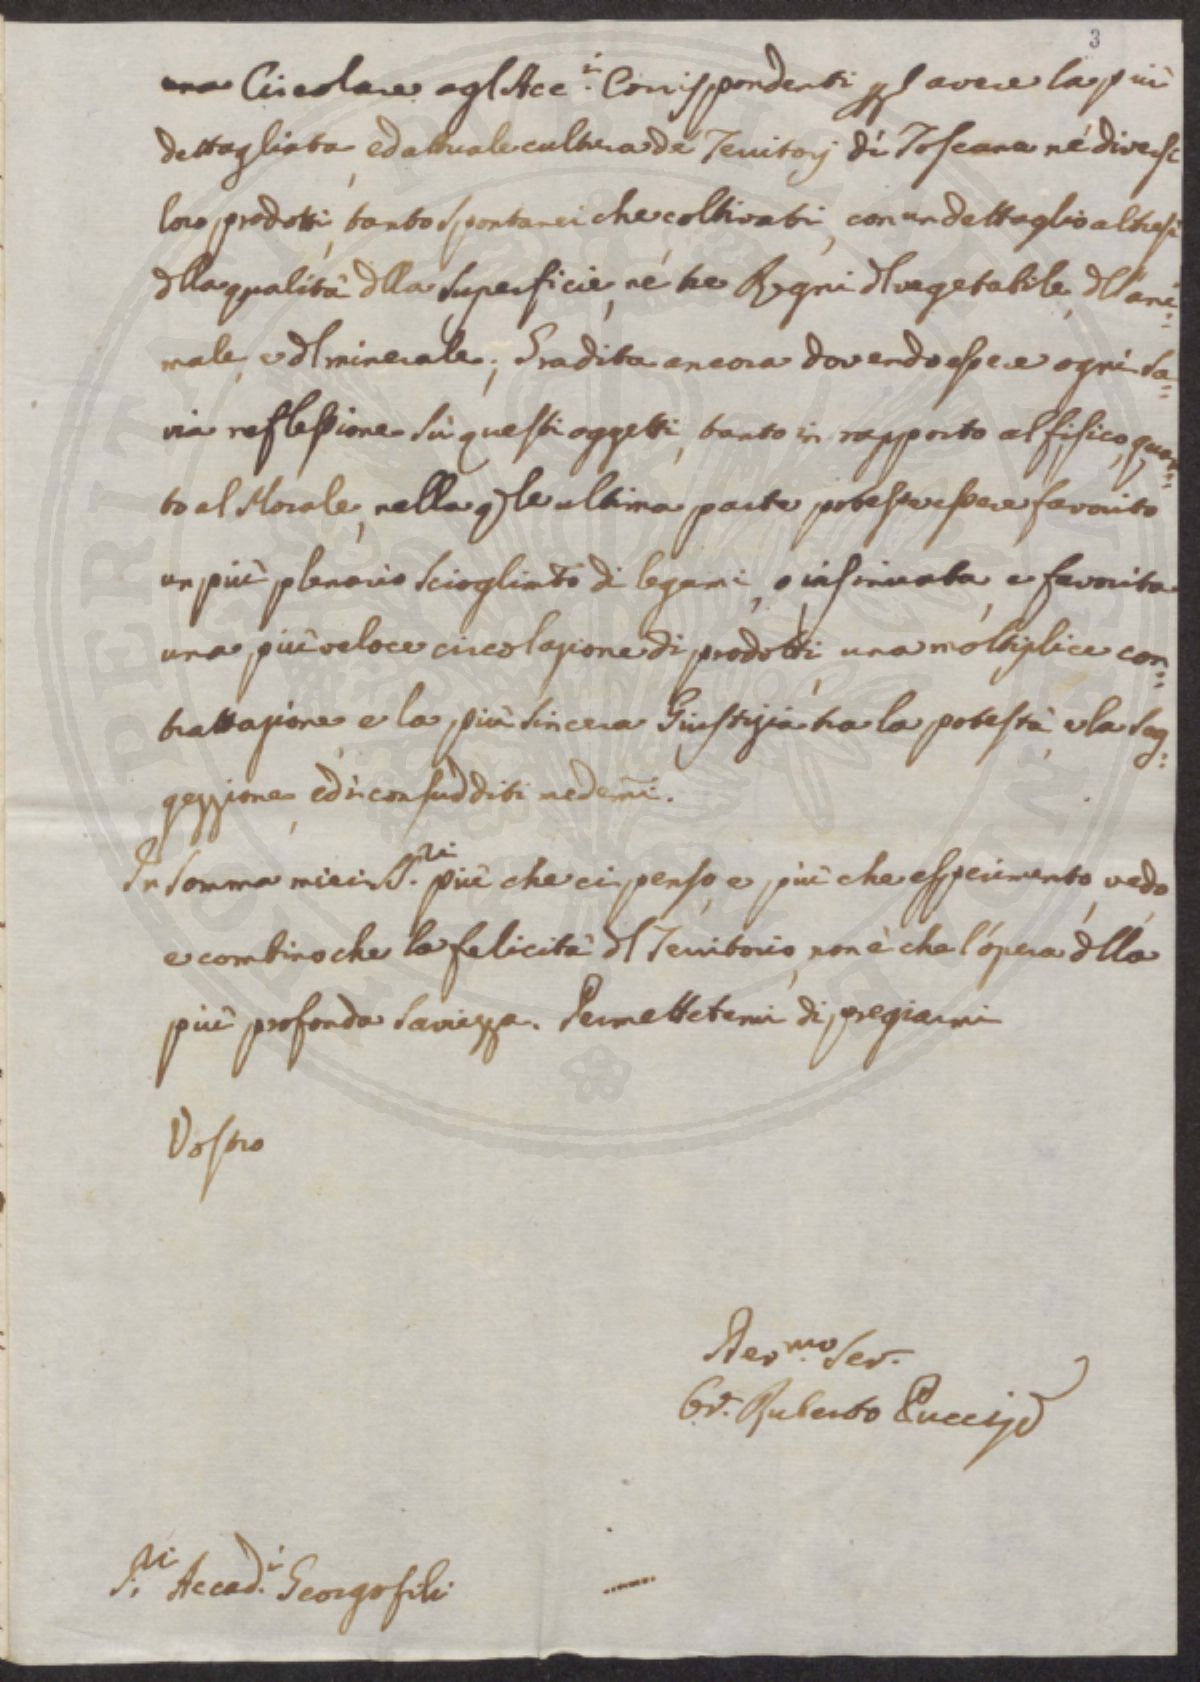 3
una Circolare agl'Acc.i Corrispondenti p avere la più
dettagliata, ed attuale cultura de' Territorj di Toscana ne' diversi
loro prodotti, tanto spontanei che coltivati, con un dettaglio altresì
dlla qualità dlla superficie, ne' tre Regni dl vegetabile, dll'ani=
male, e dl minerale; Gradita ancora dovendo essere ogni sa=
via reflessione sù questi oggetti, tanto in rapporto al fisico, quan=
to al Morale, nella qle ultima parte potesse essere favorito
un più plenario scioglimto di legami, o insinuata, e favorita
una più veloce circolazione di prodotti, una moltiplice con=
trattazione e la più sincera Giustizia tra la potestà, e la sog=
gezzione, ed i consudditi medemi.
In somma miei SS.ri più che ci penso, e più che esperimento, vedo,
e combino che la felicità dl Territorio, non è che l'opera dlla
più profonda saviezza. Permettetemi di pregiarmi
Vostro
Aff.mo Ser.
Cav. Ruberto Pucci
S.ri Accad.i Georgofili